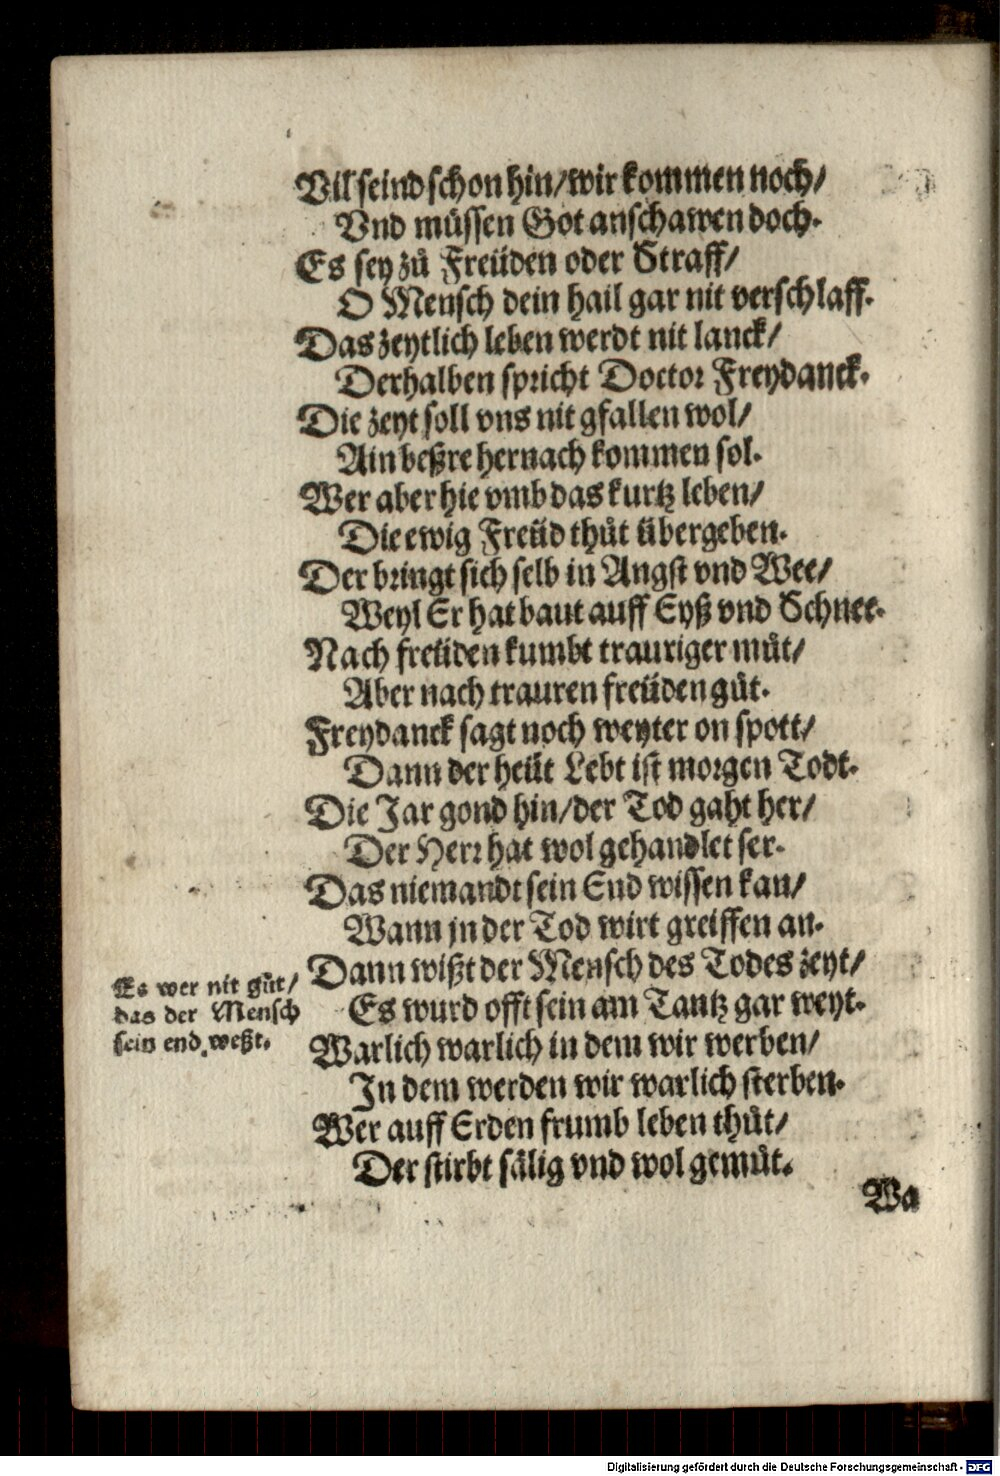 Vil seind schon hin/wir kommen noch/
Vnd müssen Got anschawen doch.
Es sey zů Freüden oder Straff/
O Mensch dein hail gar nit verschlaff.
Das zeytlich leben werdt nit lanck/
Derhalben spricht Doctor Freydanck.
Die zeyt soll vns nit gfallen wol/
Ain beßre hernach kommen sol.
Wer aber hie vmb das kurtz leben/
Die ewig Freüd thůt übergeben.
Der bringt sich selb in Angst vnd Wee/
Weyl Er hat baut auff Eyß vnd Schnee.
Nach freüden kumbt trauriger můt/
Aber nach trauren freüden gůt.
Freydanck sagt noch weyter on spott/
Dann der heüt Lebt ist morgen Todt.
Die Jar gond hin/der Tod gaht her/
Der Herr hat wol gehandlet ser.
Das niemandt sein End wissen kan/
Wann jn der Tod wirt greiffen an.
Dann wißt der Mensch des Todes zeyt/
Es wurd offt sein am Tantz gar weyt.
Warlich warlich in dem wir werben/
In dem werden wir warlich sterben.
Wer auff Erden frumb leben thůt/
Der stirbt sälig vnd wol gemůt.
Es wer nit gůt/
das der Mensch
sein end weßt.
Wa
Digitalisierung gefördert durch die Deutsche Forschungsgemeinschaft - DFG